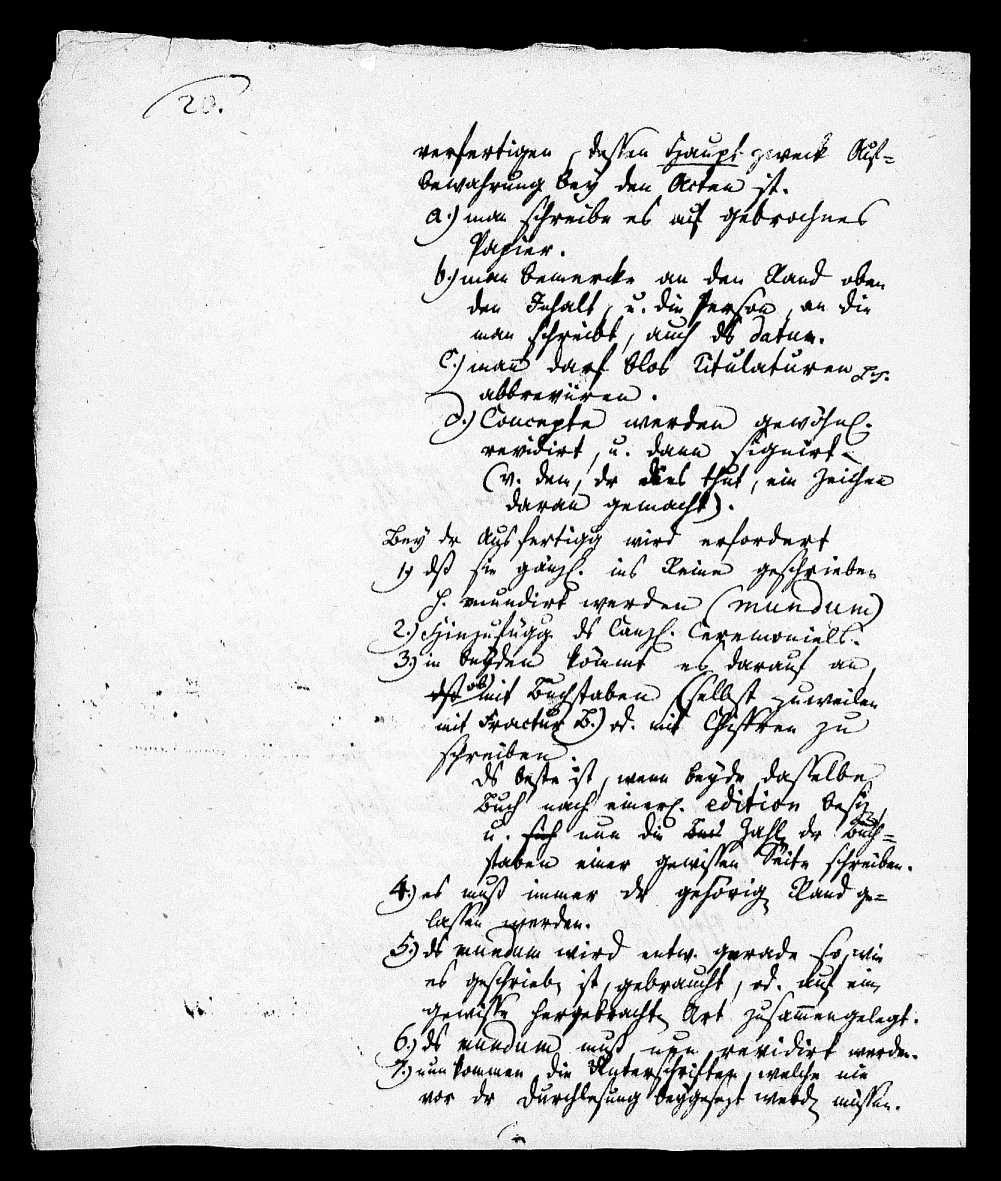 20.
verfertigen, dessen Haupt zweck Auf=
bewahrung bey den Acten ist.
a.) man schreibe es auf gebrochnes
Papier.
b.) man bemercke an den Rand oben
den Inhalt, u. die Person, an die
man schreibt, auch ds Datum.
c.) man darf blos Titulaturen pp.
abbreviiren.
d.) Concepte werden gewöhnl.
revidirt, u. dann signirt
(v. dem, dr dies thut, ein Zeichen
daran gemacht).
Bey dr Ausfertigg wird erfordert
1) dß sie gänzl. ins Reine geschrieben
h. mundirt werden (mundum)
2.) Hinzufügg. ds Canzl. Ceremoniells.
3.) in beyden kömmt es darauf an,
dß ob mit Buchstaben (selbst zuweilen
mit Fractur B.) od. mit Chiffren zu
schreiben.
ds beste ist, wenn beyde dasselbe
Buch nach einerl. edition besiz.
u. sich nun die Bus Zahl dr Buch=
staben einer gewissen Seite schreiben.
4.) es muß immer dr gehörig Rand ge=
lassen werden.
5.) ds mundum wird entw. gerade so, wie
es geschrieb. ist, gebraucht, od. auf eine
gewisse hergebracht. Art zusammengelegt.
6.) ds mundum muß nun revidirt werden.
7.) nun kommen die Unterschriften, welche nie
vor dr Durchlesung beygesezt werd. müssen.